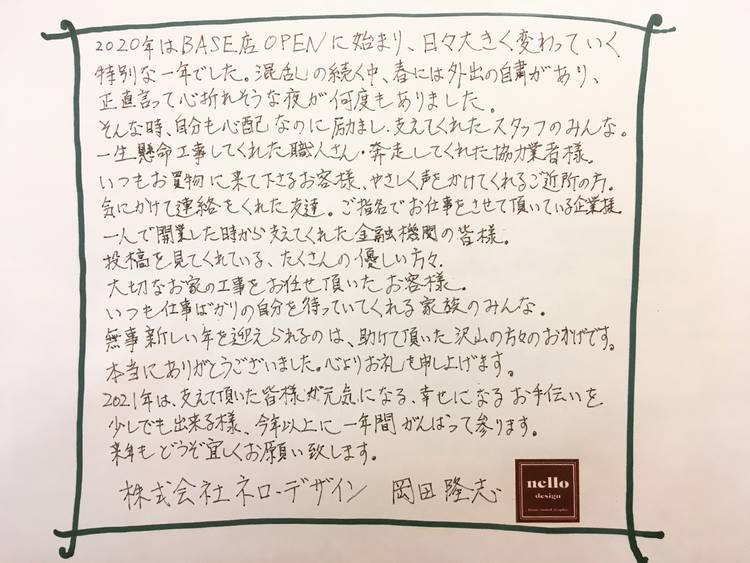 2020年はBASE店OPENに始まり、日々大きく変わっていく
特別な一年でした。混乱の続く中、春には外出の自粛があり、
正直言って心折れそうな夜が何度もありました。
そんな時、自分も心配なのに励まし支えてくれたスタッフのみんな。
一生懸命工事してくれた職人さん・奔走してくれた協力業者様。
いつもお買物に来て下さるお客様、やさしく声をかけてくれるご近所の方。
気にかけて連絡をくれた友達。ご指名でお仕事をさせて頂いている企業様。
一人で開業した時から支えてくれた金融機関の皆様。
投稿を見てくれている、たくさんの優しい方々。
大切なお家の工事をお任せ頂いたお客様。
いつも仕事ばかりの自分を待っていてくれる家族のみんな。
無事新しい年を迎えられるのは、助けて頂いた沢山の方々のおかげです。
本当にありがとうございました。心よりお礼を申し上げます。
2021年は、支えて頂いた皆様が元気になる、幸せになるお手伝いを
少しでも出来る様、今年以上に一年間がんばって参ります。
来年もどうぞ宜しくお願い致します。
株式会社ネロ・デザイン 岡田隆志
nello
design